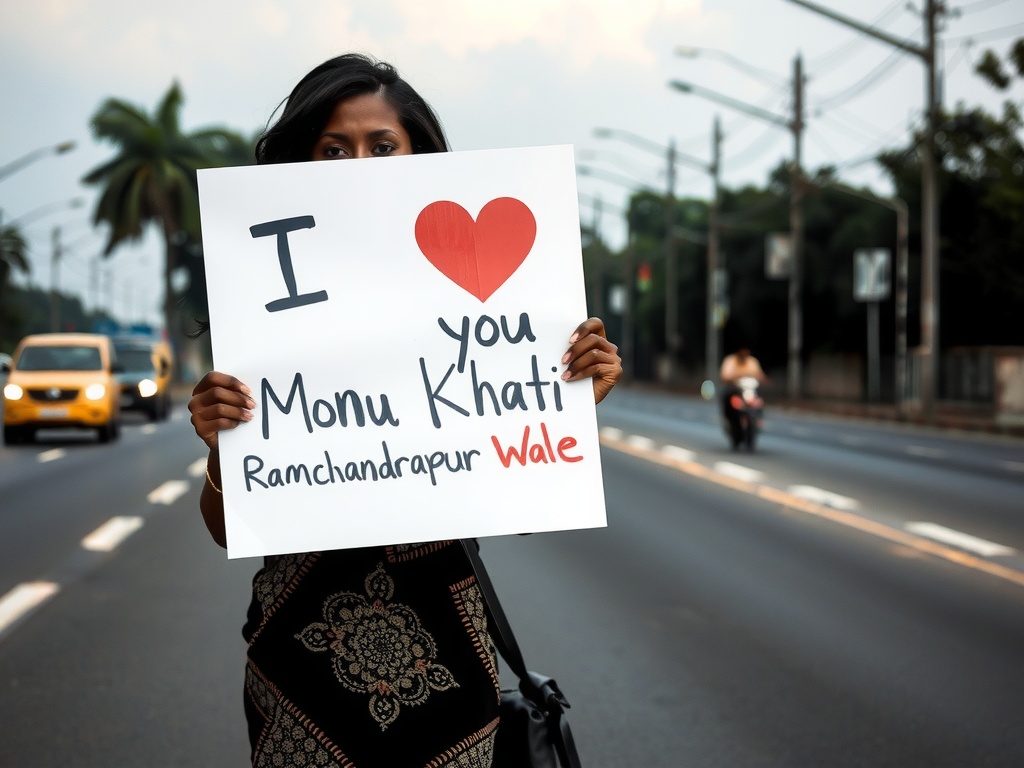 I ❤️
you
Monu Khati
Ramchandrapur Wale